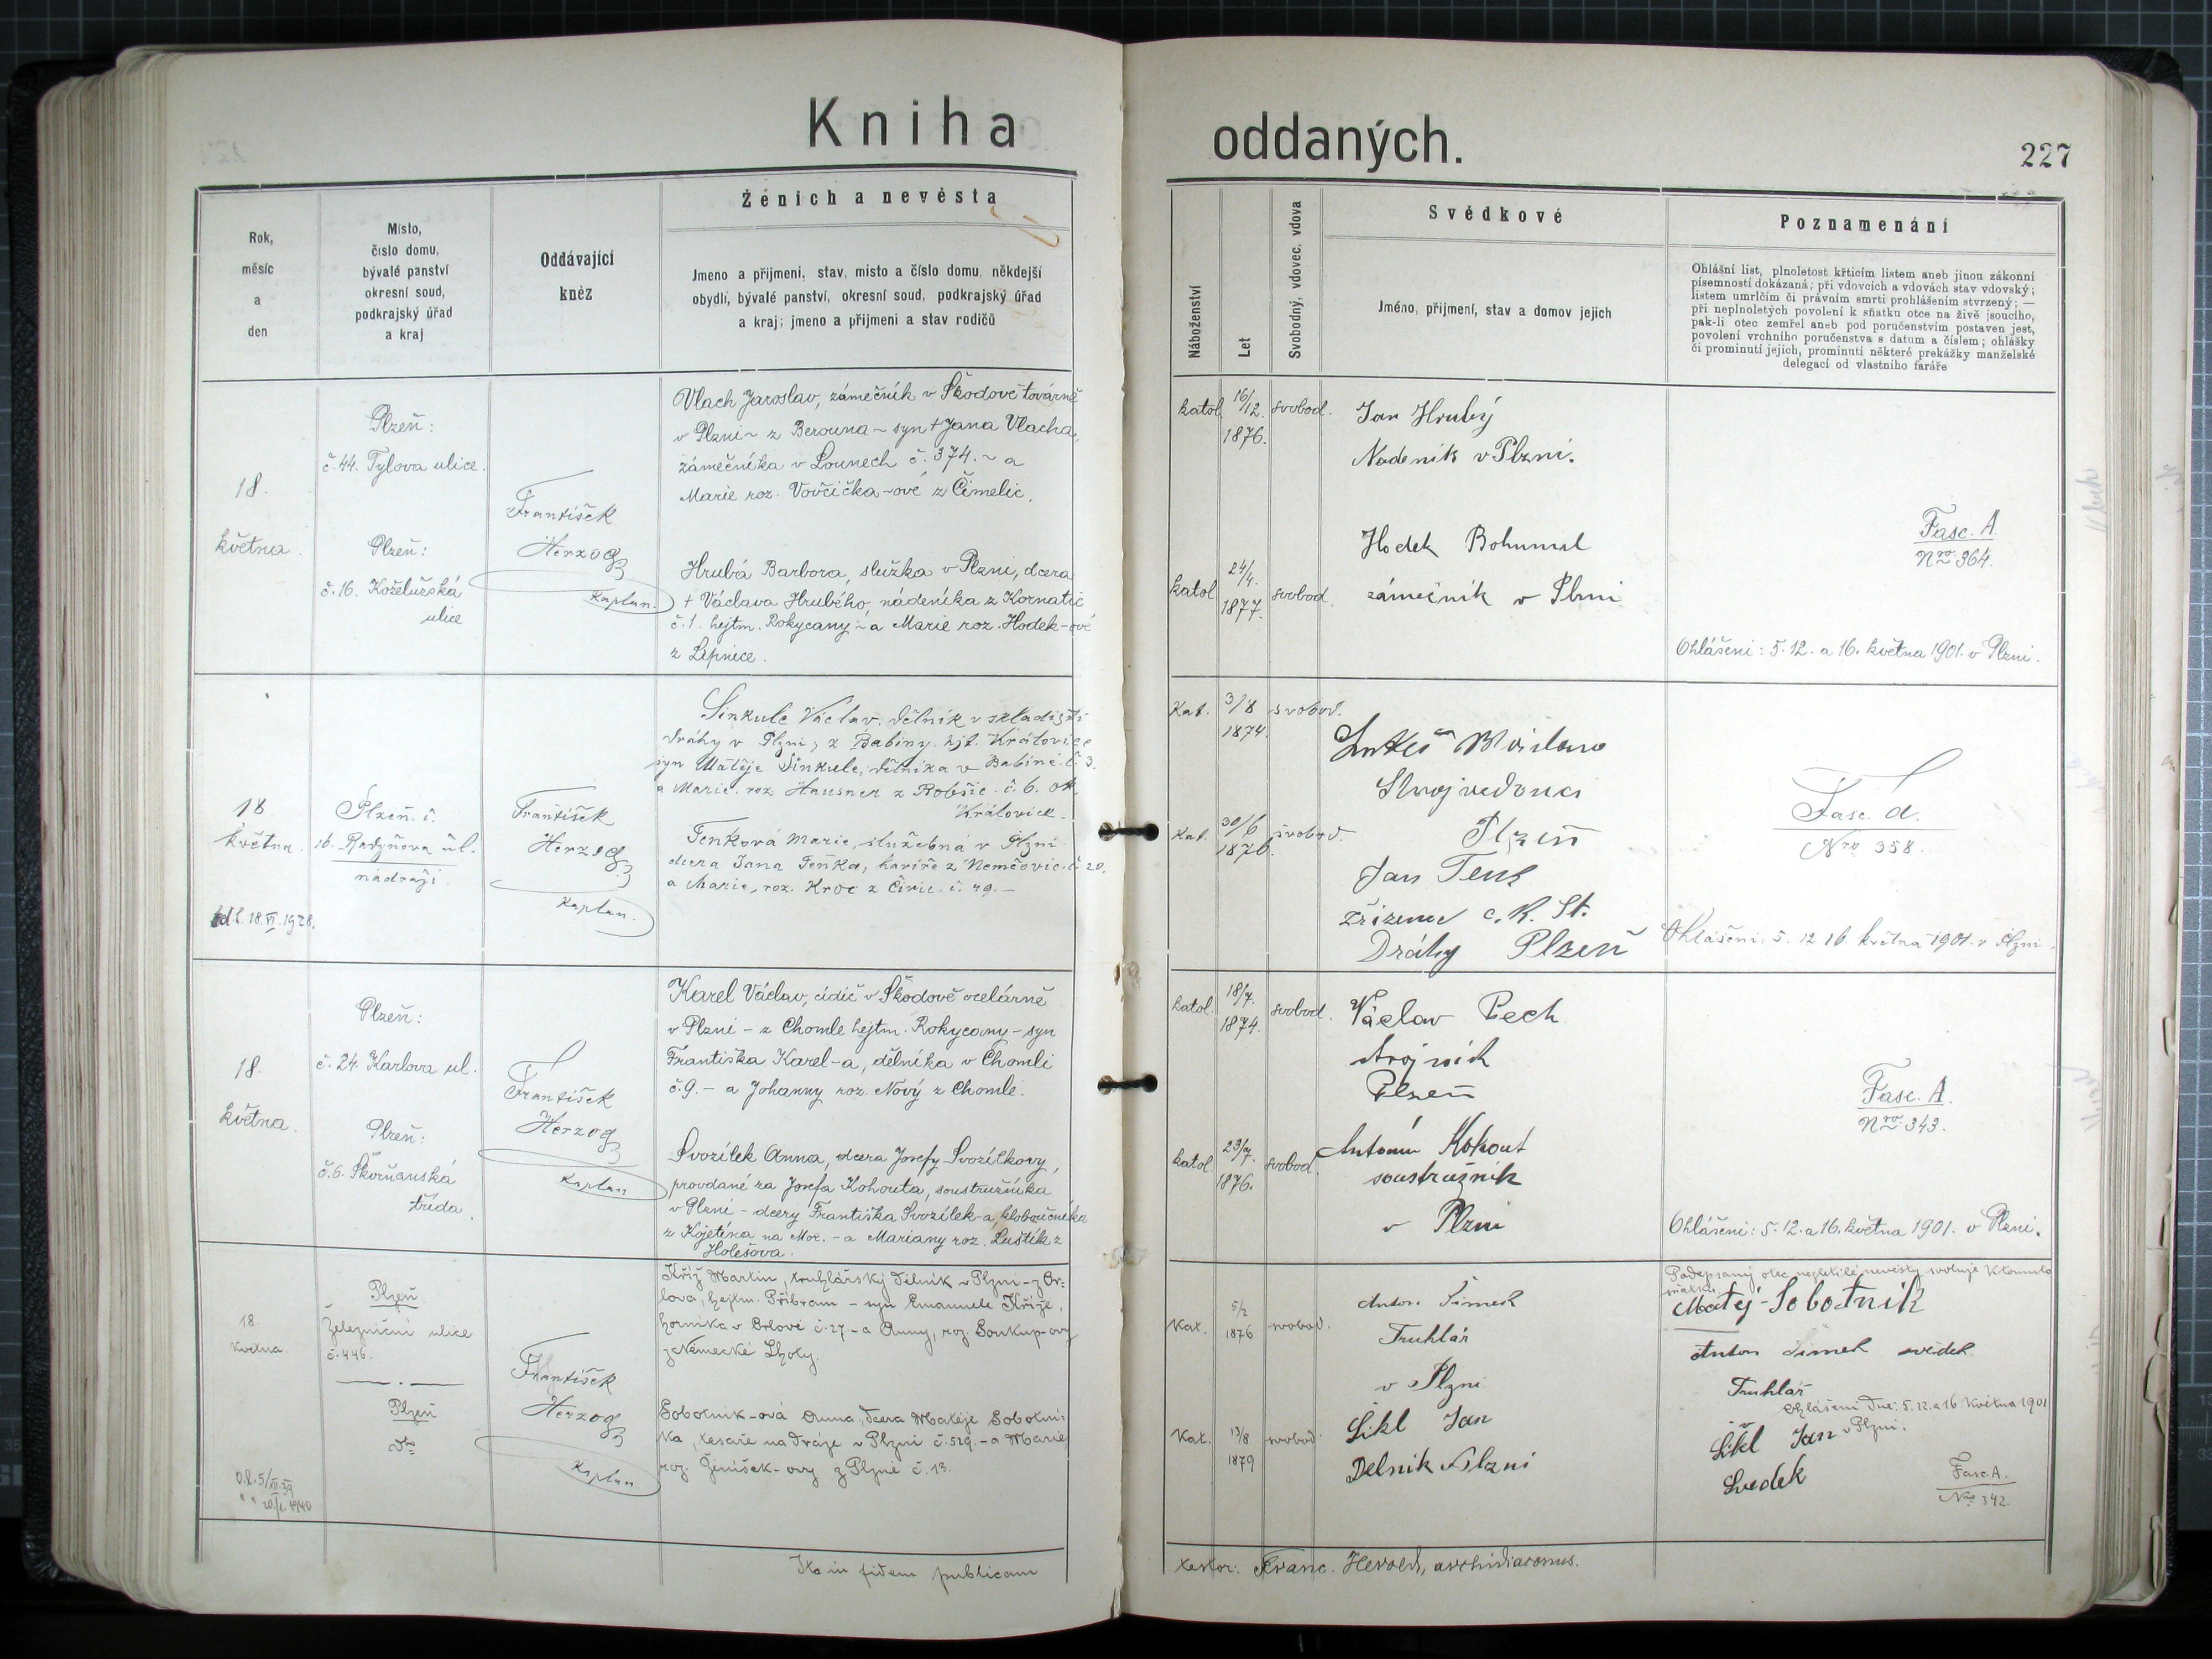 Kniha
oddaných.
227
Rok,
měsíc
a
den
Místo,
číslo domu,
bývalé panství
okresní soud,
podkrajský úřad
a kraj
Oddávající
kněz
Ženich a nevěsta
Jmeno a přijmeni, stav, misto a číslo domu, někdejší
obydlí, bývalé panství, okresní soud, podkrajský úřad
a kraj; jmeno a přijmeni a stav rodičů
Náboženství
Let
Svobodný, vdovec, vdova
Svědkové
Jméno, přijmení, stav a domov jejich
Poznamenání
Ohlášní list, plnoletost křticím listem aneb jinou zákonní
písemností dokázaná; při vdovcích a vdovách stav vdovský;
listem umrlčím či právním smrti prohlášením stvrzený; —
při neplnoletých povolení k sňatku otce na živě jsoucího,
pak-li otec zemřel aneb pod poručenstvím postaven jest,
povolení vrchního poručenstva s datum a číslem; ohlášky
či prominutí jejich, prominutí některé prekážky manželské
delegací od vlastního faráře
18.
května.
Plzeň:
č. 44. Tylova ulice.
Plzeň:
č. 16. Koželužská
ulice
František
Herzog
Kaplan.
Vlach Jaroslav, zámečník v Škodově továrně
v Plzni ~ z Berouna ~ syn † Jana Vlacha,
zámečníka v Lounech č. 374. ~ a
Marie roz. Vovčička-ové z Čimelic.
Hrubá Barbora, služka v Plzni, dcera
† Václava Hrubého, nádeníka z Kornatic
č. 1. hejtm. Rokycany ~ a Marie roz. Hodek-ové
z Lipnice.
katol. 16/12. 1876. svobod.
katol. 24/4. 1877. svobod.
Jan Hrubý
Nadenik v Plzni.
Hodek Bohumil
zámečník v Plzni
Fasc. A.
Nro 364.
Ohlášeni: 5. 12. a 16. května 1901. v Plzni.
18.
května.
18. VI. 1928.
Plzeň. č.
16. Radyňova ul.
nádraží.
František
Herzog
Kaplan.
Šinkule Václav, dělník v skladišti
dráhy v Plzni, z Babiny hjt. Královice
syn Matěje Šinkule, dělníka v Babině č. 3.
a Marie roz. Hausner z Robčic č. 6. ok.
Královice.
Tenková Marie, služebná v Plzni
dcera Jana Tenka, havíře z Němčovic č. 20.
a Marie, roz. Kroc z Čivic č. 49. –
Kat. 3/8 1874. svobod.
Kat. 30/6 1876. svobod.
Strojvedouci
Plzeň
Jan Tenk
zřizenec c. k. St.
Dráhy Plzeň
Fasc. A.
Nro 358.
Ohlášeni: 5. 12. 16. května 1901. v Plzni.
18.
května.
Plzeň:
č. 24. Karlova ul.
Plzeň:
č. 6. Škorňanská
třída
František
Herzog
Kaplan
Karel Václav, cídič v Škodově ocelárně
v Plzni – z Chomle hejtm. Rokycany – syn
Františka Karel-a, dělníka v Chomli
č. 9. – a Johanny roz. Nový z Chomle.
Svozílek Anna, dcera Josefy Svozílkovy,
provdané za Josefa Kohouta, soustružníka
v Plzni – dcery Františka Svozílek-a, kloboučníka
z Kojetína na Mor. – a Mariany roz. Luštík z
Holešova.
katol. 18/7. 1874. svobod.
katol. 23/7. 1876. svobod.
Václav Pech
strojník
Plzeň
Antonín Kohout
soustružnik
v Plzni
Fasc. A.
Nro. 343.
Ohlášeni: 5. 12. a 16. května 1901. v Plzni.
18
května.
Plzeň
Železniční ulice
č. 446.
Plzeň
dto
František
Herzog
Kaplan.
Kříž Martin, truhlářský dělník v Plzni – z Or-
lova, hejtm. Příbram – syn Emanuele Kříže,
horníka v Orlově č. 27. – a Anny, roz. Soukup-ovy
z Německé Lhoty.
Sobotník-ová Anna, dcera Matěje Sobotní-
ka, tesaře na dráze v Plzni č. 529. – a Marie,
roz. Jeníšek-ovy z Plzně č. 13.
Kat. 5/2 1876 svobod.
Kat. 13/8 1879 svobod.
Anton Šimek
Truhlár
v Plzni
Šikl Jan
Delnik v Plzni
Podepsaný otec nezletilé nevěsty svoluje k tomuto
sňatku
Matěj Sobotník
Anton Šimek svědek
Truhlář
Ohlášeni dne: 5. 12. a 16. Května 1901
v Plzni.
Šikl Jan
Svedek
Fasc. A.
Nro. 342.
Ita in fidem publicam
testor: Franc. Herold, archidiaconus.